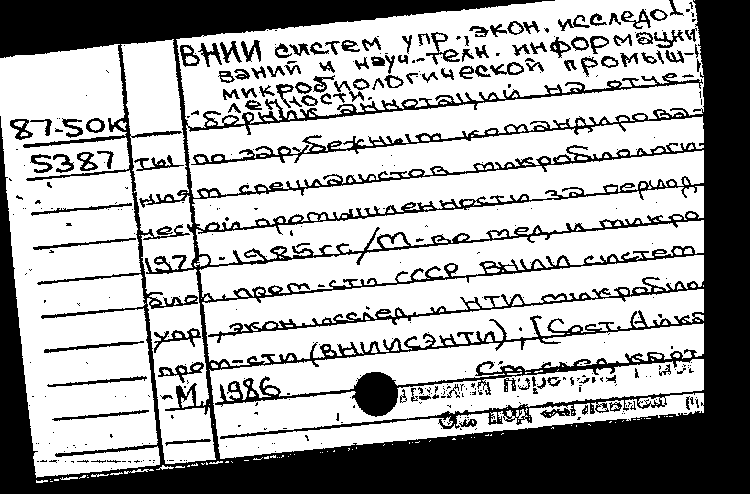 ВНИИ систем упр., экон. исследо-
ваний и науч.-техн. информации
микробиологической промыш-
ленности.
87-50К Сборник аннотаций на отче-
5387 ты по зарубежным командирова-
ниям специалистов микробиологи-
ческой промышленности за период
1970-1985 гг. / М-во мед. и микро
биол. пром-сти СССР, ВНИИ систем
упр., экон. исслед. и НТИ микробиол
пром-сти (ВНИИСЭНТИ); [Сост. Айка
См. след. карт
-М., 1986
см. под заглавием